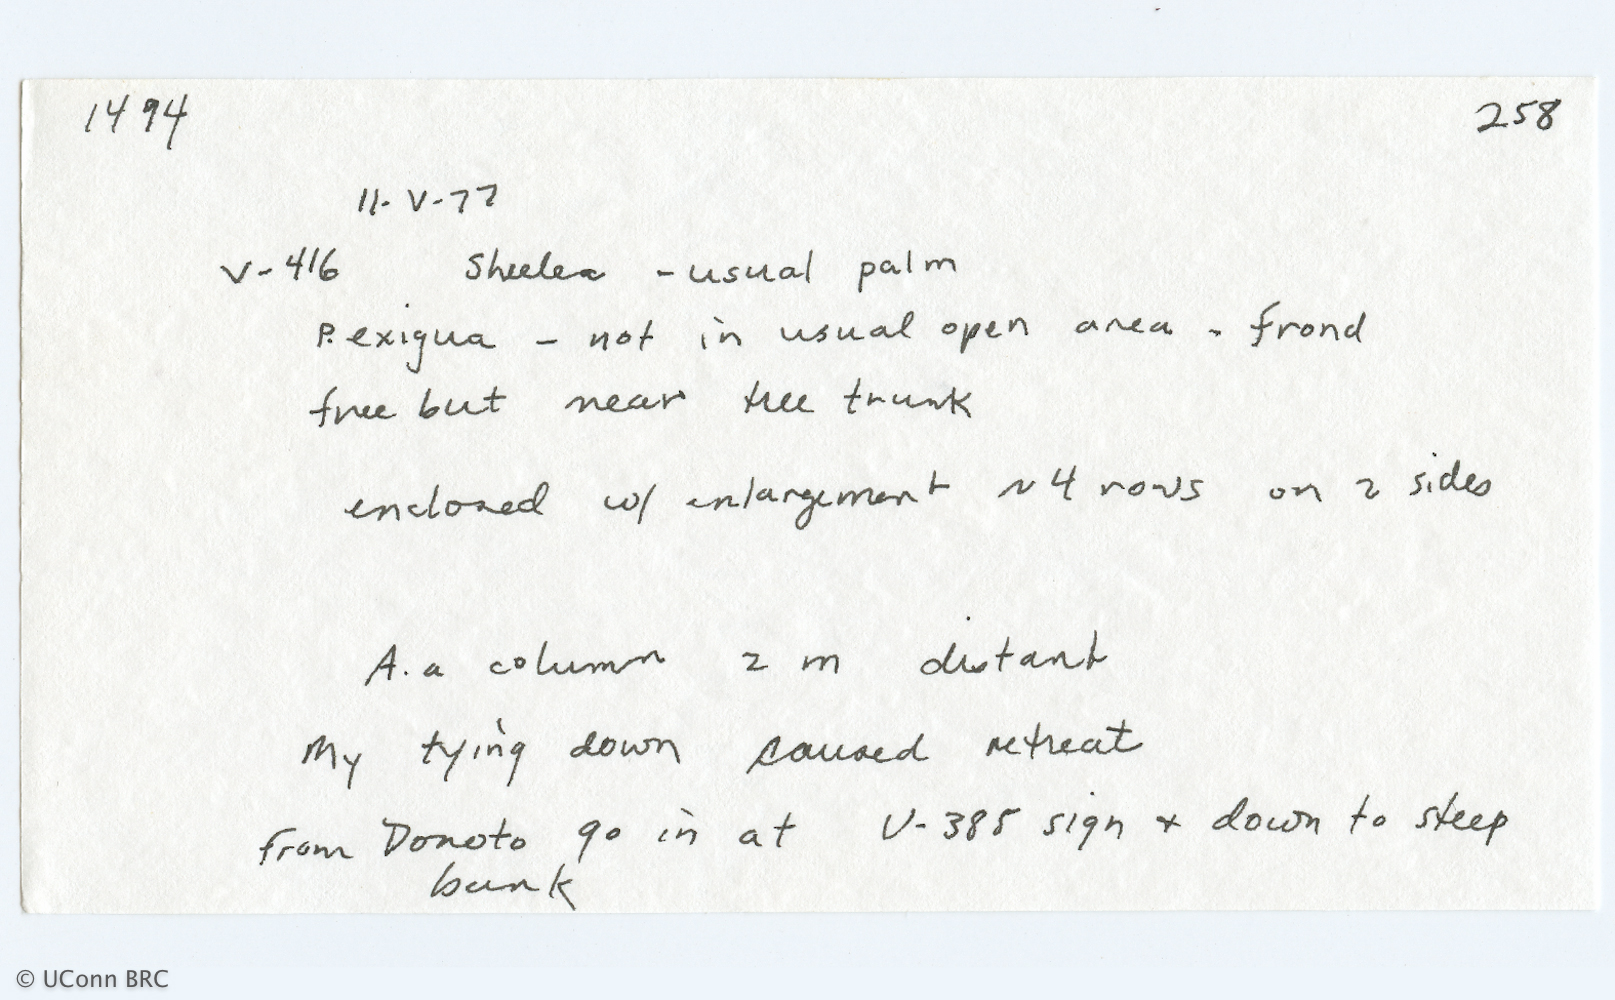 1494 258
11-V-77
V-416 Sheelea - usual palm
P. exigua - not in usual open area - frond
free but near tree trunk
enclosed w/ enlargement ~ 4 rows on 2 sides
A. a column 2 m distant
My tying down caused retreat
from Donoto go in at V-385 sign + down to steep
bank
© UConn BRC